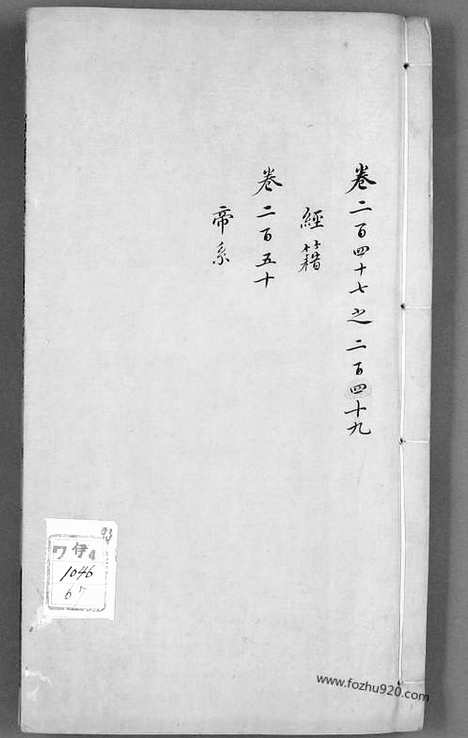 卷二百四十七之二百四十九
經籍
卷二百五十
帝系
93
ワ 伊4
1046
67
www.fozhu920.com